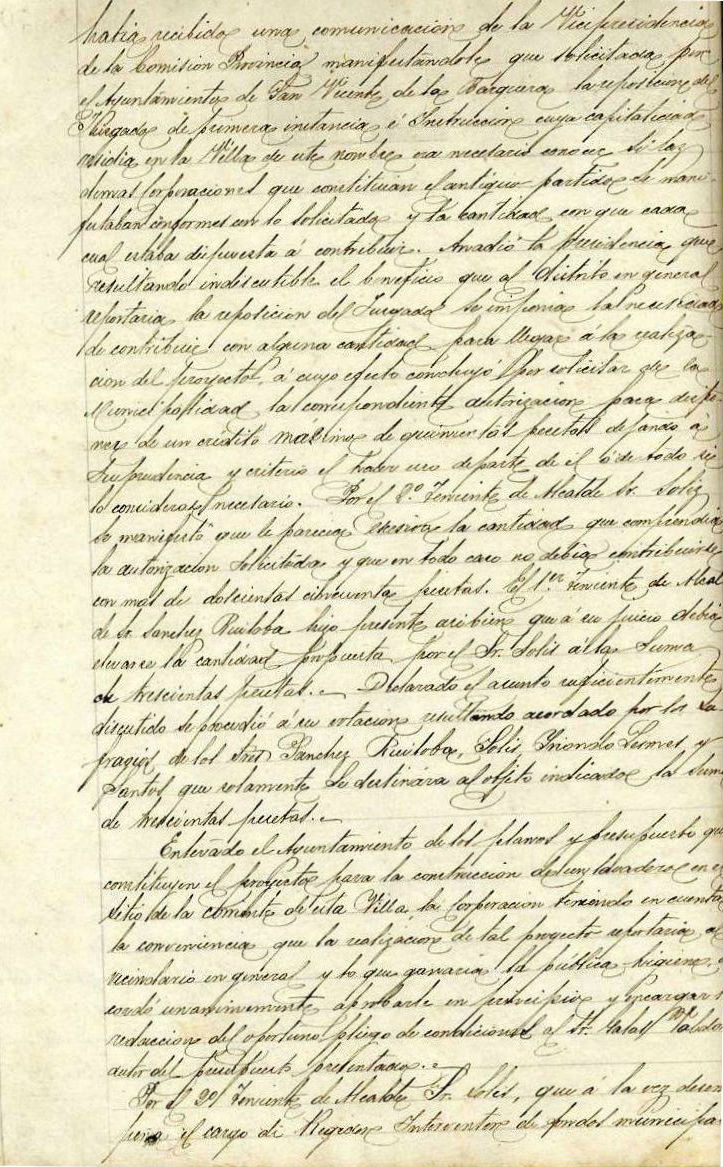 habia recibido una comunicación de la Vicepresidencia
de la Comision Provincial manifestándole que solicitada por
el Ayuntamiento de San Vicente de la Barquera la reposicion del
Juzgado de primera instancia é Instruccion cuya capitalidad
residia en la Villa de este nombre era necesario conocer si las
demas Corporaciones que constituian el antiguo partido se mani-
festaban conformes con lo solicitado y la cantidad con que cada
cual estaba dispuesta á contribuir. Anadió la Presidencia que
resultando indiscutible el beneficio que al distrito en general
reportaria la reposicion del Juzgado se imponia la necesidad
de contribuir con alguna cantidad para llegar á la realiza-
cion del proyecto, á cuyo efecto concluyó por solicitar de la
Municipalidad la correspondiente autorizacion para dispo-
ner de un crédito maximo de quinientas pesetas dejando á
su prudencia y criterio el hacer uso de parte de el ó de todo si
lo considera necesario. Por el 2º Teniente de Alcalde Sr. Solis
se manifestó que le parecia excesiva la cantidad que comprendia
la autorizacion solicitada y que en todo caso no debia contribuirse
con mas de doscientas cincuenta pesetas. El 1er Teniente de Alcal
de Sr. Sanchez Ruiloba hizo presente asi bien que á su juicio debia
elevarse la cantidad propuesta por el Sr. Solis á la suma
de trescientas pesetas. Declarado el asunto suficientemente
discutido se procedió á su votacion resultando acordado por los su-
fragios de los Sres Sanchez Ruiloba, Solis, Iriondo Lesmes y
Santos que solamente se destinara al objeto indicado la suma
de trescientas pesetas.
Enterado el Ayuntamiento de los planos y presupuesto que
constituyen el proyecto para la construccion de un lavadero en el
sitio de la de esta Villa, la Corporacion teniendo en cuenta
la conveniencia que la realizacion de tal proyecto reportaria al
vecindario en general y lo que ganaria la publica higiene, a
cordó unanimemente aprobarle en principio y encargar l
redaccion del oportuno pliego de condiciones al Sr.
autor del presupuesto presentado.
Por el 2º Teniente de Alcalde Sr. Solis, que á la vez desem
peña el cargo de Regidor Interventor de fondos municipa